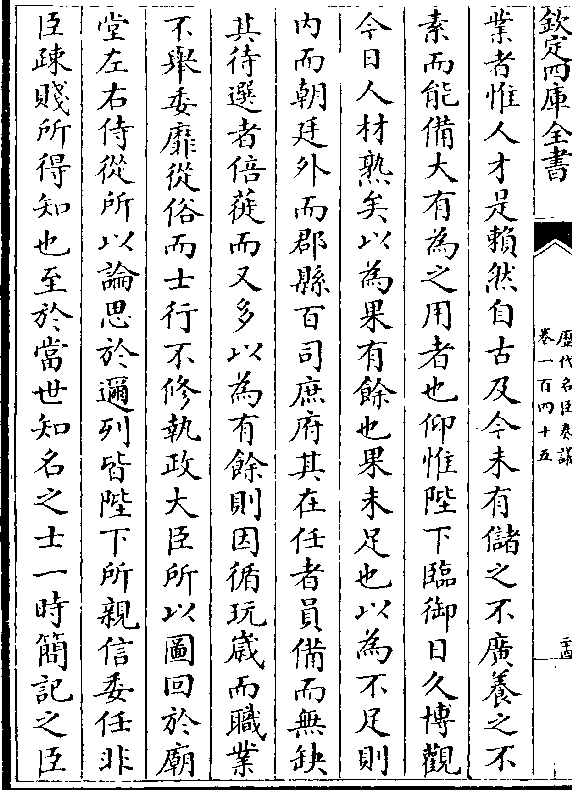 欽定四庫全書
歷代名臣奏議
卷一百四十五
二十四
業者惟人才是賴然自古及今未有儲之不廣養之不
素而能備大有為之用者也仰惟陛下臨御日久博觀
今日人材熟矣以為果有餘也果未足也以為不足則
内而朝廷外而郡縣百司庶府其在任者員備而無缺
其待選者倍蓰而又多以為有餘則因循玩嵗而職業
不舉委靡從俗而士行不修執政大臣所以圖回於廟
堂左右侍從所以論思於邇列皆陛下所親信委任非
臣疎賤所得知也至於當世知名之士一時簡記之臣